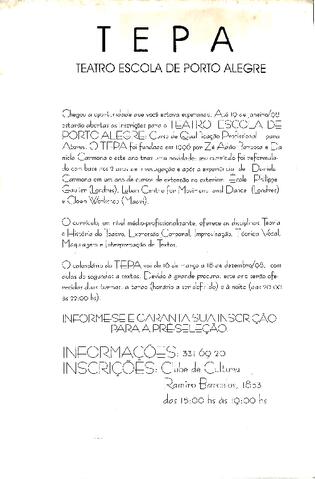 TEPA
TEATRO ESCOLA DE PORTO ALEGRE
Chegou a oportunidade que você estava esperando. Até 19 de janeiro/98
estarão abertas as inscrições para o TEATRO ESCOLA DE
PORTO ALEGRE: Curso de Qualificação Profissional para
Atores. O TEPA foi fundado em 1996 por Zé Adão Barbosa e Da
niela Carmona e este ano traz uma novidade: seu currículo foi reformula-
do com base nos 2 anos de investigação e após a experiência de Daniela
Carmona em um ano de cursos de extensão no exterior: École Philippe
Gaulier (Londres), Laban Centre for Movement and Dance (Londres)
e Clown Workshop
O currículo, em nível médio-profissionalizante, oferece as disciplinas: Teoria
e História do Teatro, Expressão Corporal, Improvisação, Técnica Vocal,
Maquiagem e Interpretação de Textos.
O calendário do TEPA vai de 16 de março a 18 de dezembro/98, com
aulas de segundas a sextas. Devido à grande procura, este ano serão ofe-
recidas duas turmas: à tarde (horário a ser definido) e à noite (das 20:00
às 22:00 hs).
INFORME-SE E GARANTA SUA INSCRIÇÃO
PARA A PRÉ-SELEÇÃO.
INFORMAÇÕES: 331 69 20
INSCRIÇÕES: Clube de Cultura
Ramiro Barcelos, 1853
das 15:00 hs às 19:00 hs